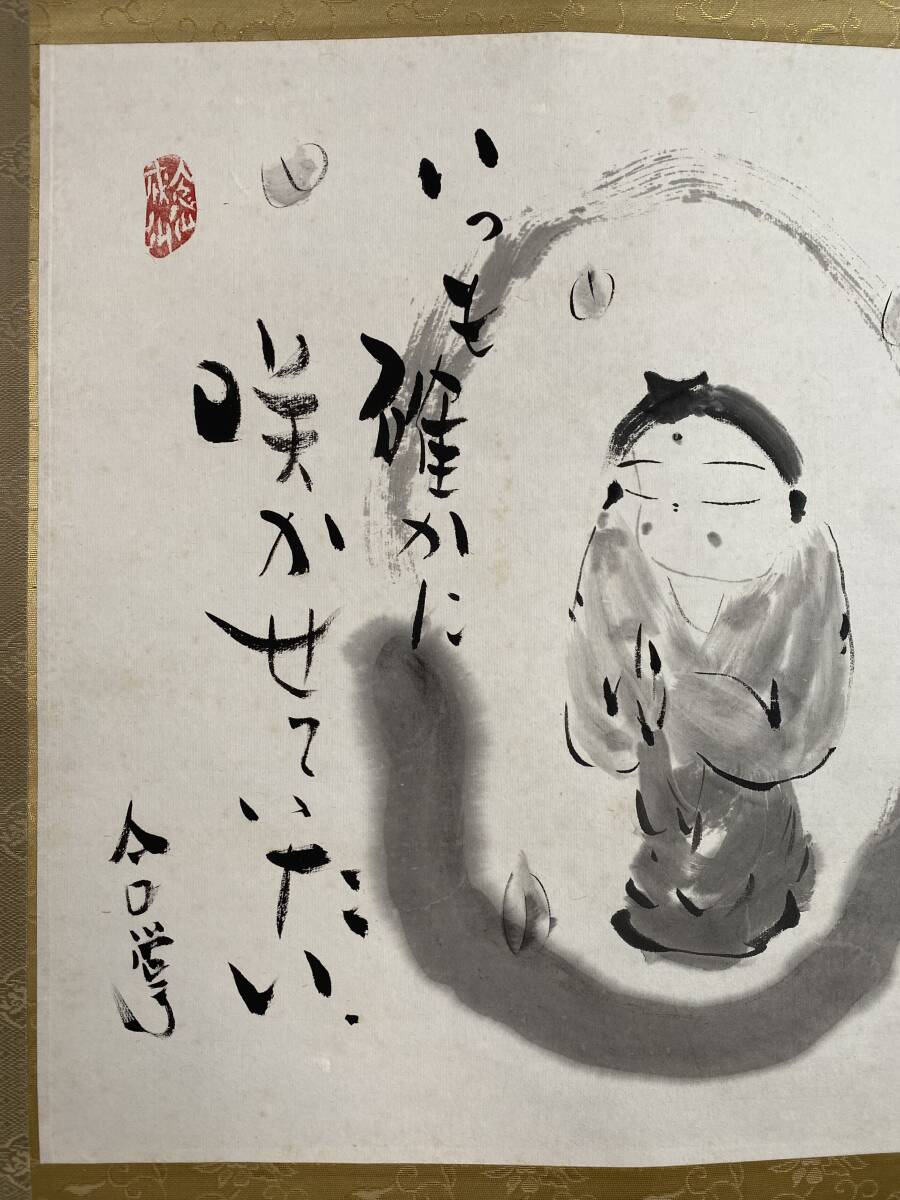 いつも
確かに
咲かせて
いたい